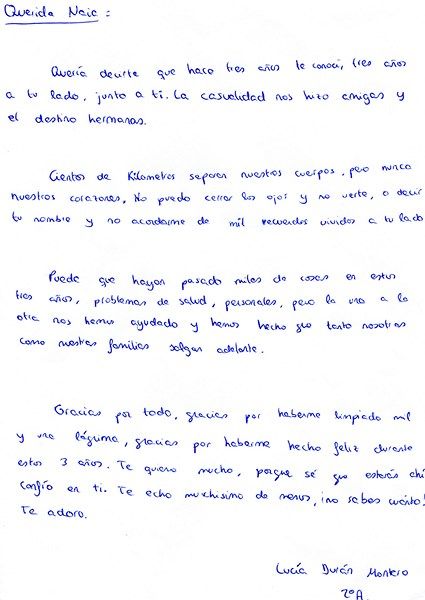 Querida Naia:
Quería decirte que hace tres años te conocí, tres años
a tu lado, junto a ti. La casualidad nos hizo amigas y
el destino hermanas.
Cientos de Kilometros separan nuestros cuerpos, pero nunca
nuestros corazones, No puedo cerrar los ojos y no verte, o decir
tu nombre y no acordarme de mil recuerdos vividos a tu lado
Puede que hayan pasado miles de cosas en estos
tres años, problemas de salud, personales, pero la una a la
otra nos hemos ayudado y hemos hecho que tanto nosotras
como nuestras familias salgan adelante.
Gracias por todo, gracias por haberme limpiado mil
y una lágrima, gracias por haberme hecho feliz durante
estos 3 años. Te quiero mucho, porque sé que estarás ahí
confío en ti. Te echo muchisimo de menos, ¡no sabes cuánto!
Te adoro.
Lucía Durán Montero
2ºA.